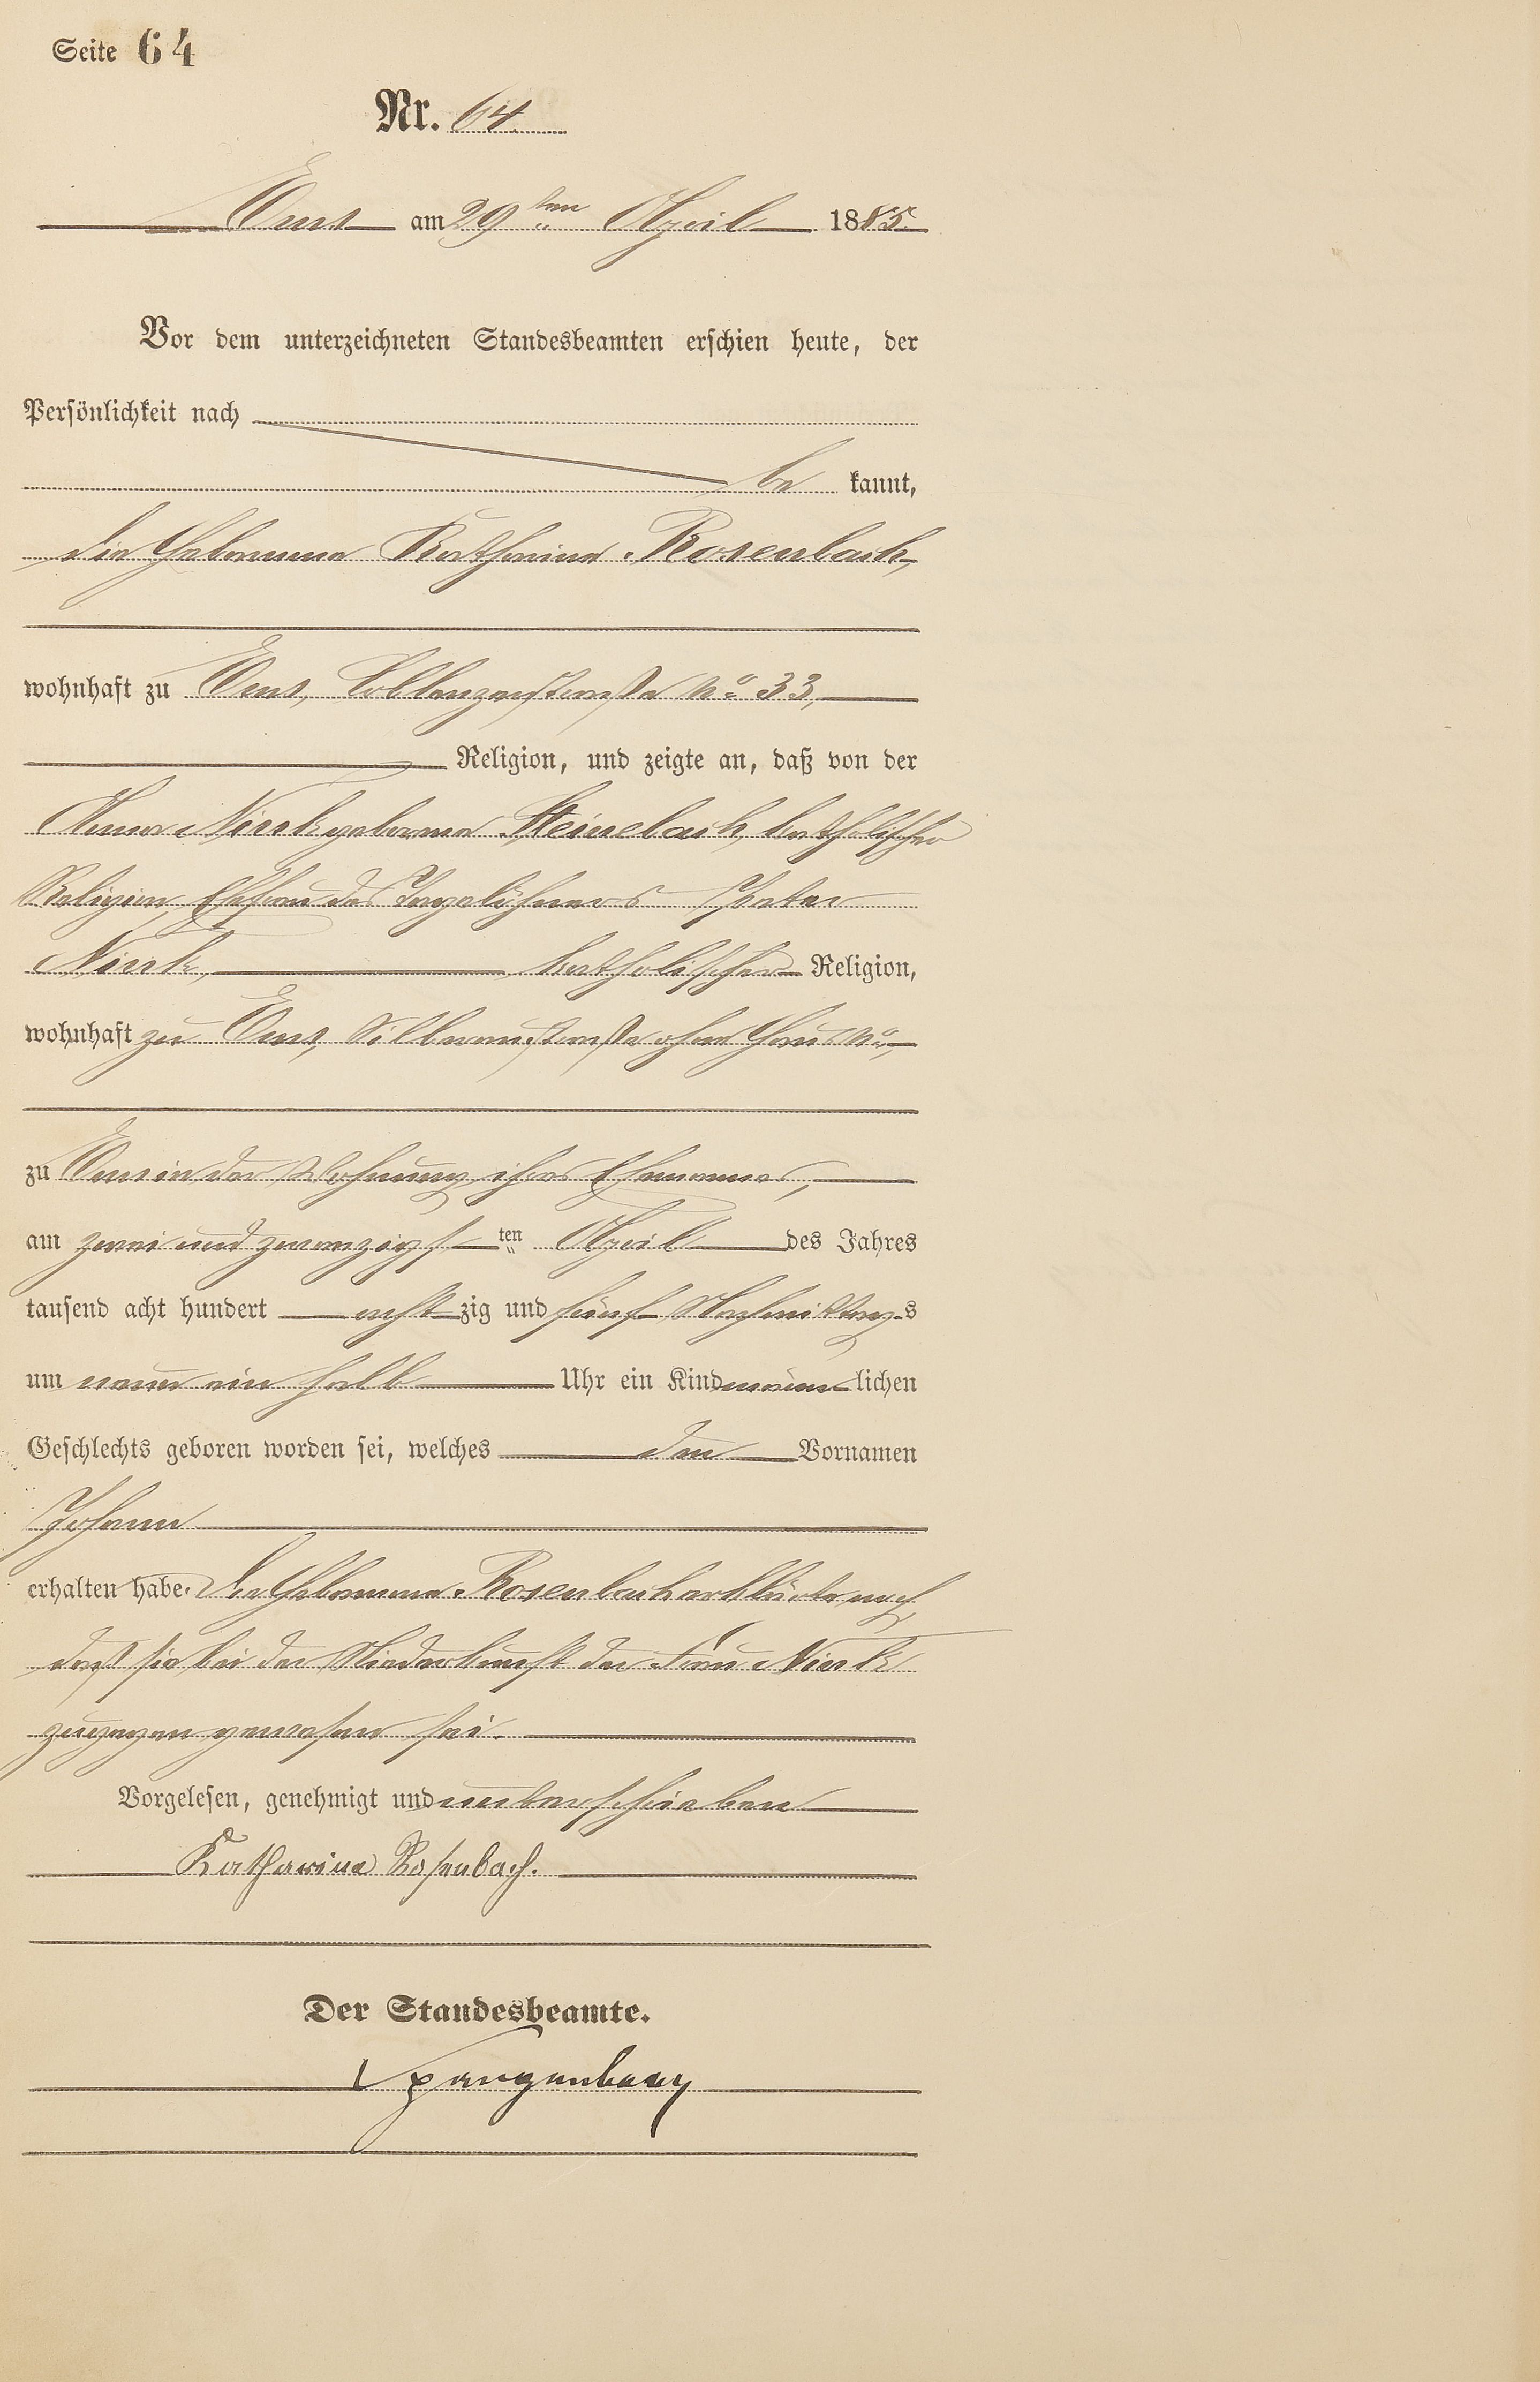 Seite 64
Nr. 64
Ems am 29ten April 1885.
Vor dem unterzeichneten Standesbeamten erschien heute, der
Persönlichkeit nach
be kannt,
die Hebamme Katharina Rosenbach,
wohnhaft zu Ems, Coblenzerstraße No 33,
Religion, und zeigte an, daß von der
Anna geborene Steinebach, katholischer
Religion, Ehefrau des Tagelöhners Peter
katholischer Religion,
wohnhaft zu Ems, Silberaustraße ohne Haus No,
zu Ems in der Wohnung ihres Ehemannes,
am zwei und zwanzigsten April des Jahres
tausend acht hundert acht zig und fünf Nachmittags
um neun ein halb Uhr ein Kind männlichen
Geschlechts geboren worden sei, welches den Vornamen
Johann
erhalten habe. Die Hebamme Rosenbach erklärte noch,
daß sie bei der Niederkunft der Frau
zugegen gewesen sei.
Vorgelesen, genehmigt und unterschrieben
Katharina Rosenbach.
Der Standesbeamte.
Spangenberg